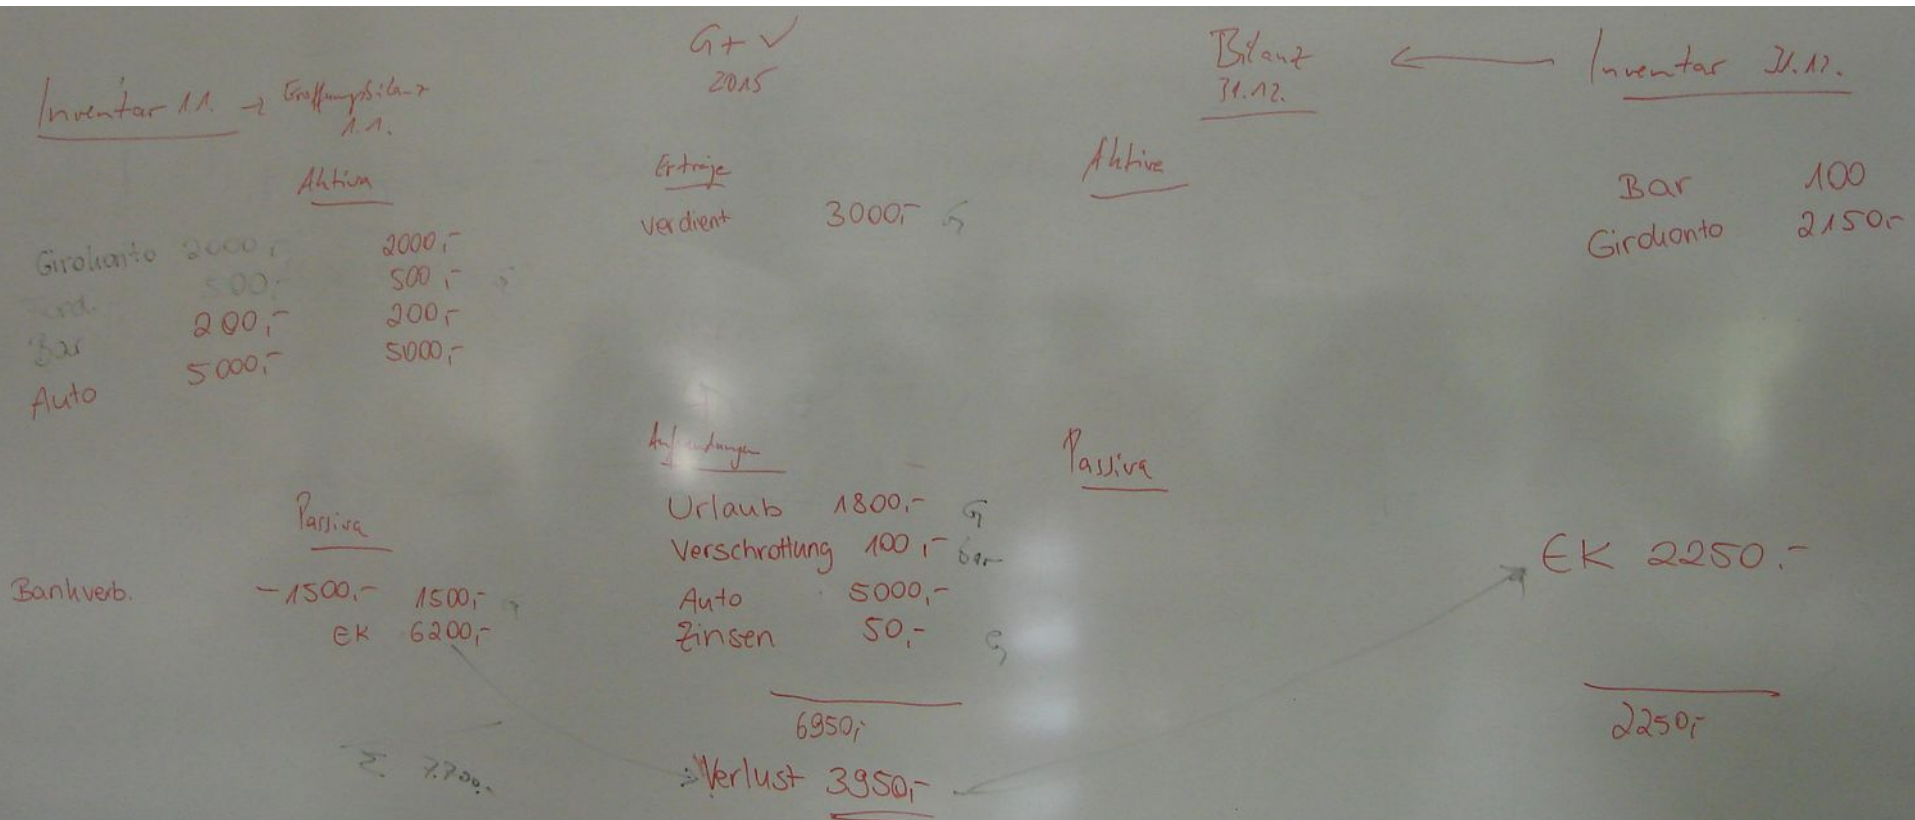 Inventar 1.1. → Eröffnungsbilanz
1.1.
Aktiva
Girokonto 2000,- 2000,-
Ford. 500,- 500,-
Bar 200,- 200,-
Auto 5000,- 5000,-
Passiva
Bankverb. -1500,- 1500,-
EK 6200,-
Σ 7.700,-
G+V
2015
Erträge
verdient 3000,- G
Aufwendungen
Urlaub 1800,- G
Verschrottung 100,- bar
Auto 5000,-
Zinsen 50,- G
6950,-
Verlust 3950,-
Bilanz
31.12.
Aktiva
Passiva
← Inventar 31.12.
Bar 100
Girokonto 2150,-
EK 2250.-
2250,-